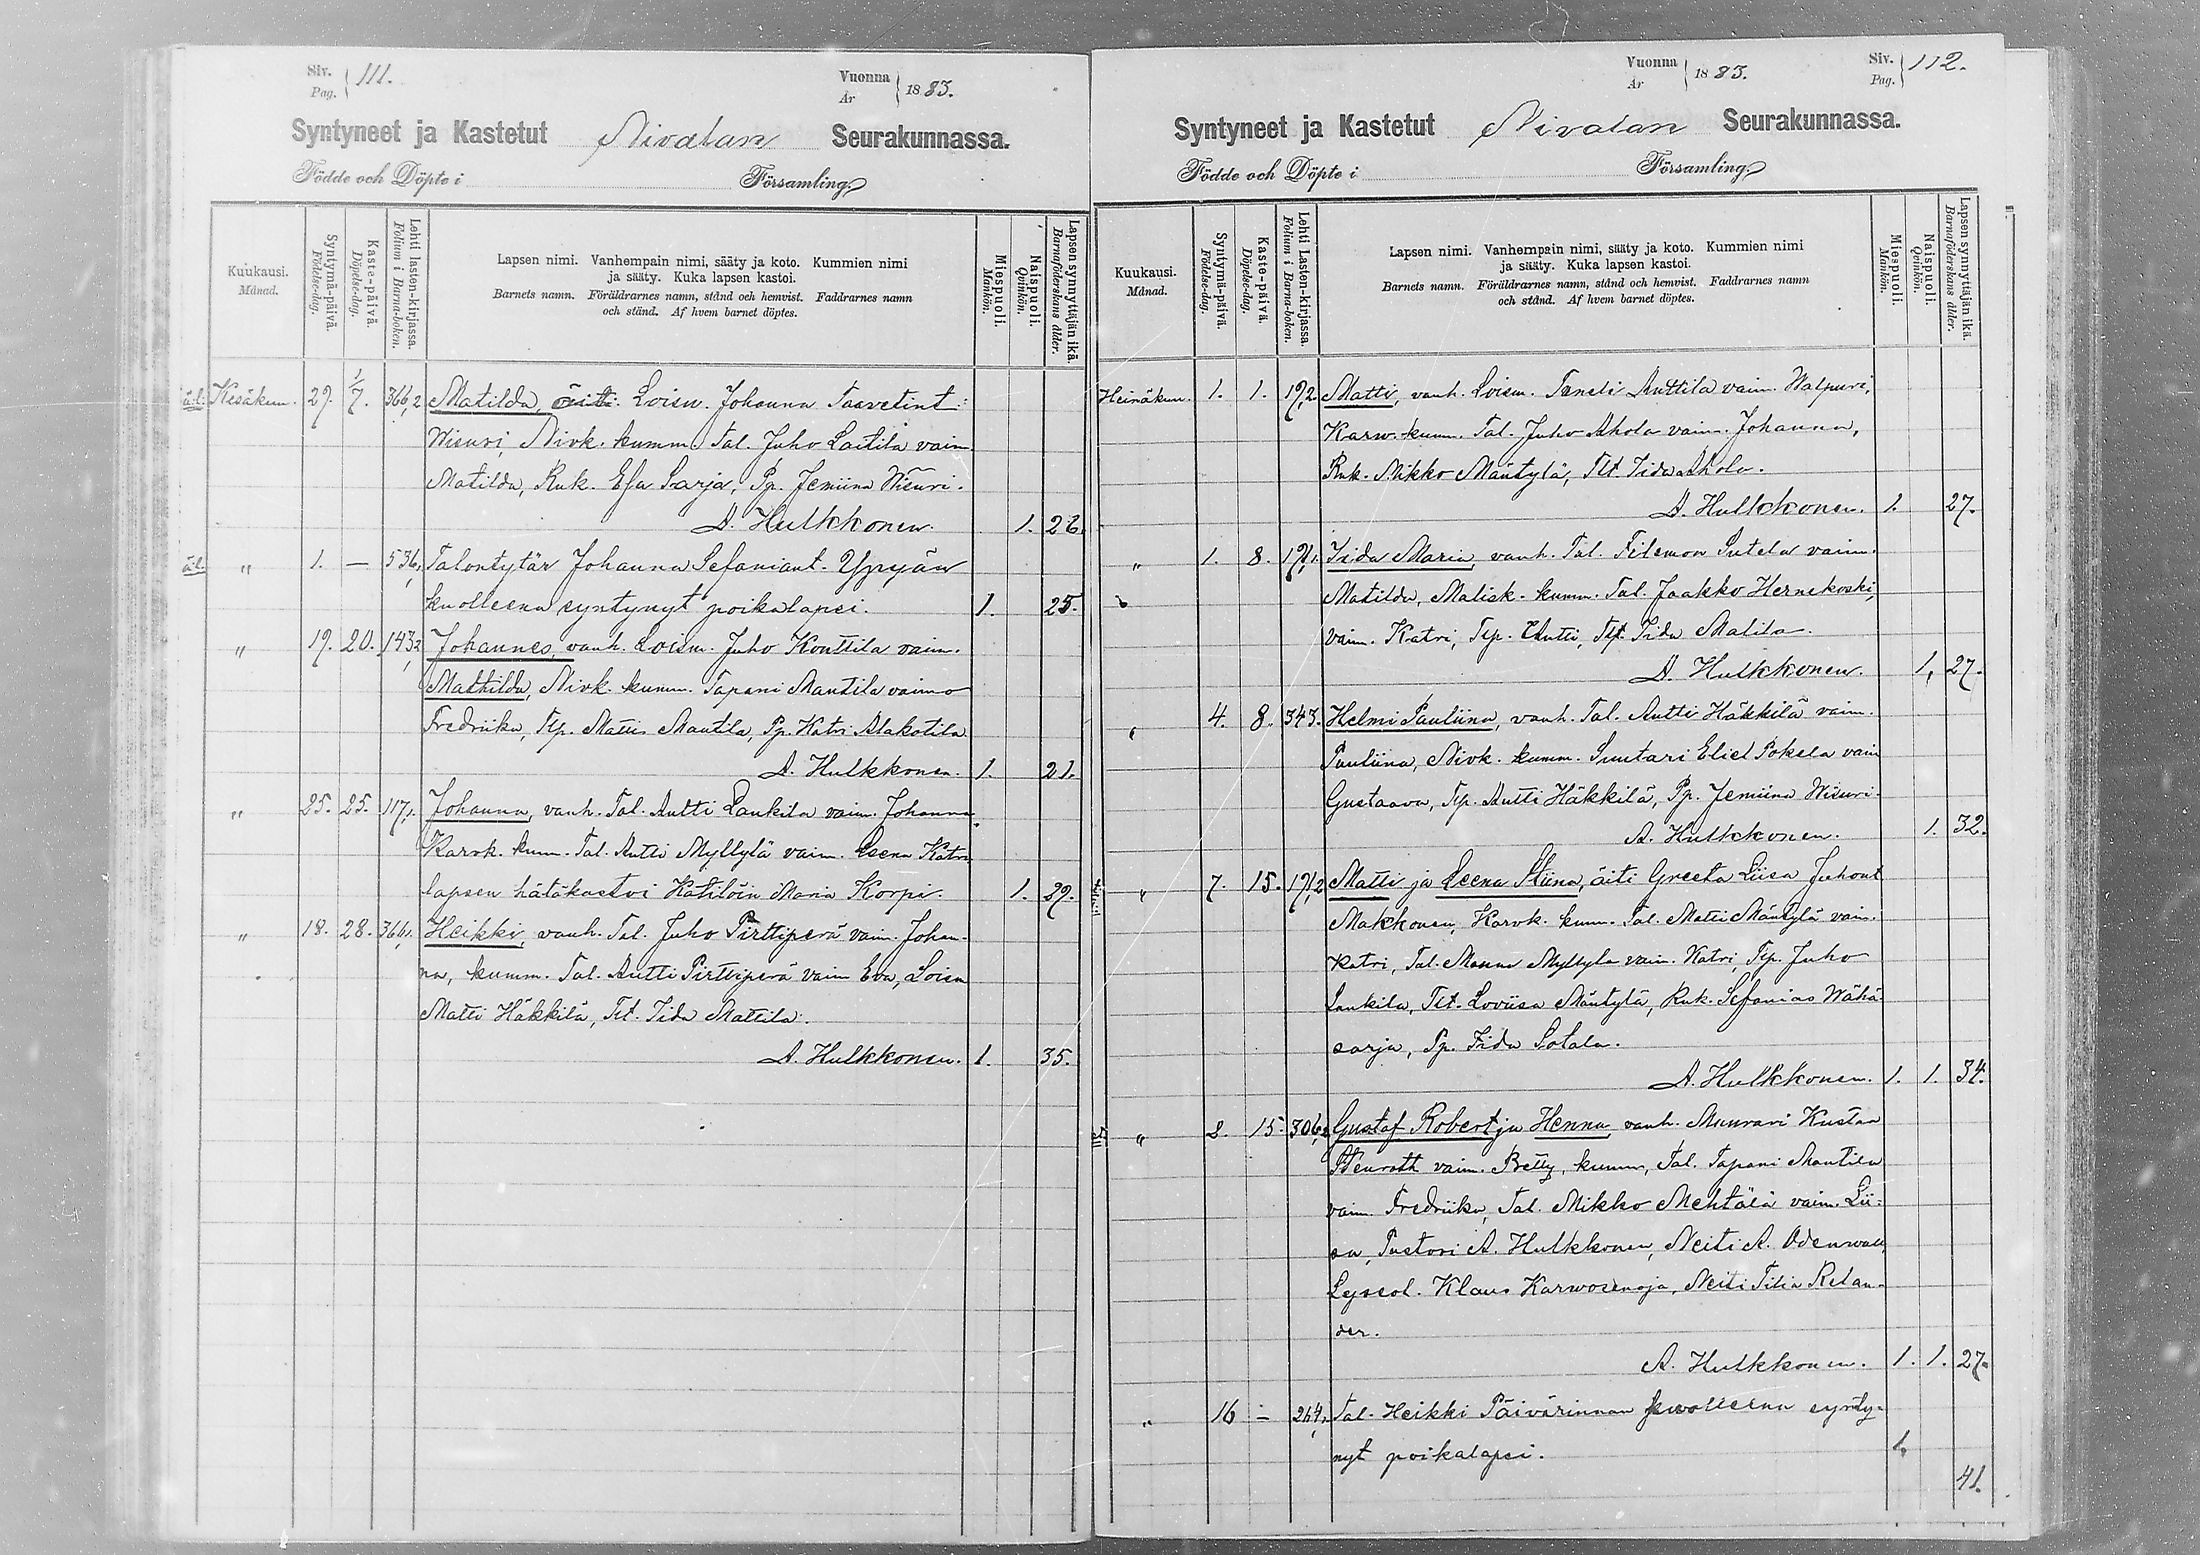 Siv. 111.
Pag.
Vuonna 1883.
År
Syntyneet ja Kastetut Nivalan Seurakunnassa.
Födde och Döpte i Församling.
Kuukausi.
Månad.
Syntymä-päivä.
Födelse-dag.
Kaste-päivä
Döpelse-dag.
Lehti lasten-kirjassa.
Folium i Barna-boken.
Lapsen nimi. Vanhempain nimi, sääty ja koto. Kummien nimi
ja sääty. Kuka lapsen kastoi.
Barnets namn. Föräldrarnes namn, stånd och hemvist. Faddrarnes namn
och stånd. Af hvem barnet döptes.
Miespuoli.
Mankön.
Naispuoli.
Qvinkön.
Lapsen synnyttäjän ikä.
Barnaföderskans ålder.
ä.l. Kesäkuu. 29. 1/7. 366,2 Matilda, äiti Loisn. Johanna Taavetint:
Wisuri, Nivk. kumm. Tal. Juho Laitila vaim.
Matilda, Ruk. Esa Sarja, Pp. Jemiina Wisuri.
A. Hulkkonen. 1. 26.
ä.l. " 1. — 536, Talontytär Johanna Sefaniant. Yppyän
kuolleena syntynyt poikalapsi. 1. 25.
" 19. 20. 143,2 Johannes, vanh. Loism. Juho Konttila vaim.
Mathilda, Nivk. kumm. Tapani Mantila vaimo
Fredriika, Tlp. Matti Mantila, Pp. Katri Alakotila
A. Hulkkonen. 1. 21.
" 25. 25. 117,1. Johanna, vanh. Tal. Antti Lankila vaim. Johanna
Karvk. kum. Tal. Antti Myllylä vaim. Leena Katri
lapsen hätäkastoi Kätilöin Maria Korpi. 1. 29.
" 18. 28. 366,1. Heikki, vanh. Tal. Juho Pirttiperä vaim. Johan-
na, kumm. Tal. Antti Pirttiperä vaim Eva, Loisn
Matti Häkkilä, Tlt. Iida Mattila.
A. Hulkkonen. 1. 35.
Vuonna 1883.
År
Siv. 112.
Pag.
Syntyneet ja Kastetut Nivalan Seurakunnassa.
Födde och Döpte i Församling.
Kuukausi.
Månad.
Syntymä-päivä.
Födelse-dag.
Kaste-päivä.
Döpelse-dag.
Lehti Lasten-kirjassa.
Folium i Barna-boken.
Lapsen nimi. Vanhempain nimi, sääty ja koto. Kummien nimi
ja sääty. Kuka lapsen kastoi.
Barnets namn. Föräldrarnes namn, stånd och hemvist. Faddrarnes namn
och stånd. Af hvem barnet döptes.
Miespuoli.
Mankön.
Naispuoli.
Qvinkön.
Lapsen synnyttäjän ikä.
Barnaföderskans ålder.
Heinäkuu. 1. 1. 19,2. Matti, vanh. Loism. Taneli Anttila vaim. Walpuri,
Karw. kumm. Tal. Juho Ahola vaim. Johanna,
Ruk. Mikko Mäntylä, Tlt. Iida Ahola.
A. Hulkkonen. 1. 27.
" 1. 8. 191,1. Iida Maria, vanh. Tal. Filemon Sutela vaim.
Matilda, Malisk. kumm. Tal. Jaakko Hernekoski,
vaim. Katri, Tlp. Antti, Tlt. Iida Matila.
A. Hulkkonen. 1, 27.
" 4. 8. 343. Helmi Pauliina, vanh. Tal. Antti Häkkilä vaim.
Pauliina, Nivk. kumm. Suutari Eliel Pokela vaim
Gustaava, Tlp. Antti Häkkilä, Pp. Jemiina Wisuri.
A. Hulkkonen. 1. 32.
" 7. 15. 191,2 Matti ja Leena Stiina, äiti Greeta Liisa Juhont
Makkonen, Karvk. kum. Tal. Matti Mäntylä vaim.
Katri, Tal. Mauno Myllylä vaim. Katri, Tlp. Juho
Lankila, Tlt. Loviisa Mäntylä, Ruk. Sefanias Wähä-
sarja, Pp. Iida Sotala.
A. Hulkkonen. 1. 1. 34.
" 2. 15. 306,2 Gustaf Robert ja Henna, vanh. Muurari Kustaa
Stenroth vaim. Betty, kumm. Tal. Tapani Mantila
vaim. Fredriika, Tal. Mikko Mehtälä vaim. Lii-
sa, Pastori A. Hulkkonen, Neiti A. Odenwall,
Lyseol. Klaus Karwosenoja, Neiti Titia Relan-
der.
A. Hulkkonen. 1. 1. 27.
" 16 — 264, Tal. Heikki Päivärinnan kuolleena synty-
nyt poikalapsi. 1.
41.